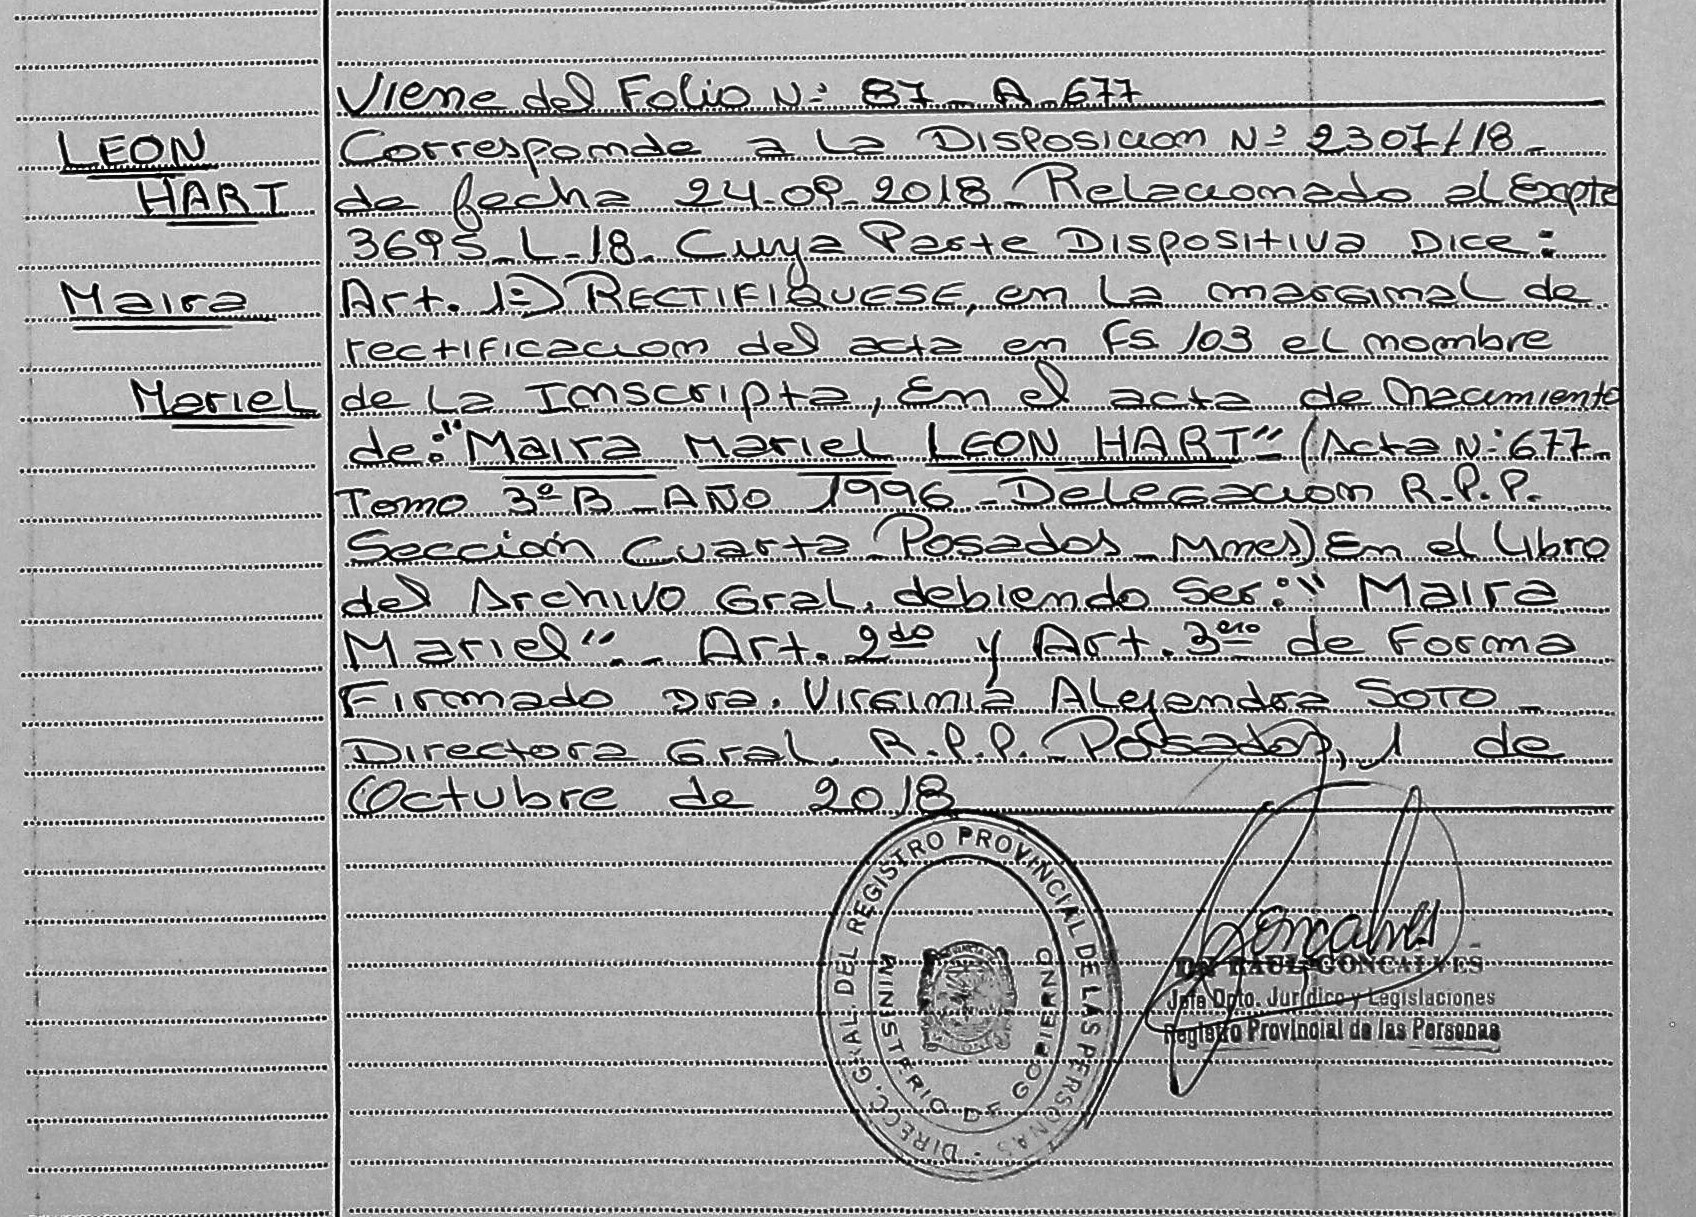 Viene del Folio Nº 87 - A - 677
LEON
HART
Maira
Mariel
Corresponde a La Disposicion Nº 2307/18 -
de fecha 24-09-2018 - Relacionado al Expte
3695 - L - 18 - Cuya Parte Dispositiva Dice:
Art. 1º) RECTIFIQUESE, en La marginal de
rectificacion del acta en Fs 103 el nombre
de La Inscripta, En el acta de nacimiento
de: "Maira Mariel LEON HART" (Acta Nº 677 -
Tomo 3º B - AÑO 1996 - Delegacion R.P.P.
Sección Cuarta - Posadas - Mnes) En el Libro
del Archivo Gral. debiendo Ser: "Maira
Mariel" - Art. 2do y Art. 3ero de Forma
Firmado Dra. Virginia Alejandra SOTO -
Directora Gral. R.P.P. - Posadas, 1 de
Octubre de 2018
DIRECC. GRAL. DEL REGISTRO PROVINCIAL DE LAS PERSONAS
MINISTERIO DE GOBIERNO
Goncalves
Dr. RAUL GONCALVES
Jefe Dpto. Jurídico y Legislaciones
Registro Provincial de las Personas